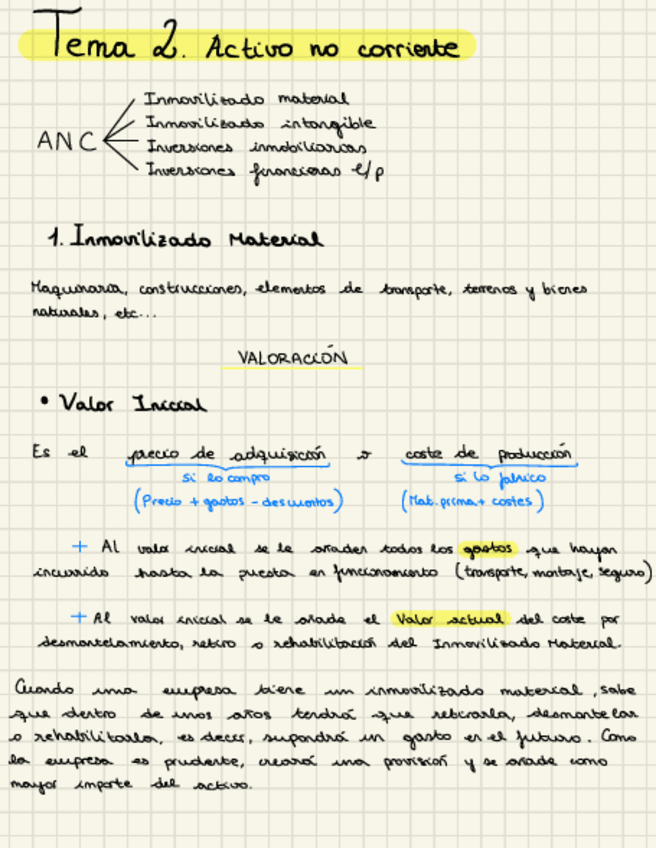 Tema 2. Activo no corriente
ANC
Inmovilizado material
Inmovilizado intangible
Inversiones inmobiliarias
Inversiones financieras l/p
1. Inmovilizado Material
Maquinaria, construcciones, elementos de transporte, terrenos y bienes
naturales, etc...
VALORACIÓN
• Valor Inicial
Es el precio de adquisición o coste de producción
si lo compro si lo fabrico
(Precio + gastos - descuentos) (Mat. prima + costes)
+ Al valor inicial se le añaden todos los gastos que hayan
incurrido hasta la puesta en funcionamiento (transporte, montaje, seguro)
+ Al valor inicial se le añade el Valor actual del coste por
desmantelamiento, retiro o rehabilitación del Inmovilizado Material.
Cuando una empresa tiene un inmovilizado material, sabe
que dentro de unos años tendrá que retirarla, desmantelar
o rehabilitarla, es decir, supondrá un gasto en el futuro. Como
la empresa es prudente, creará una provisión y se añade como
mayor importe del activo.